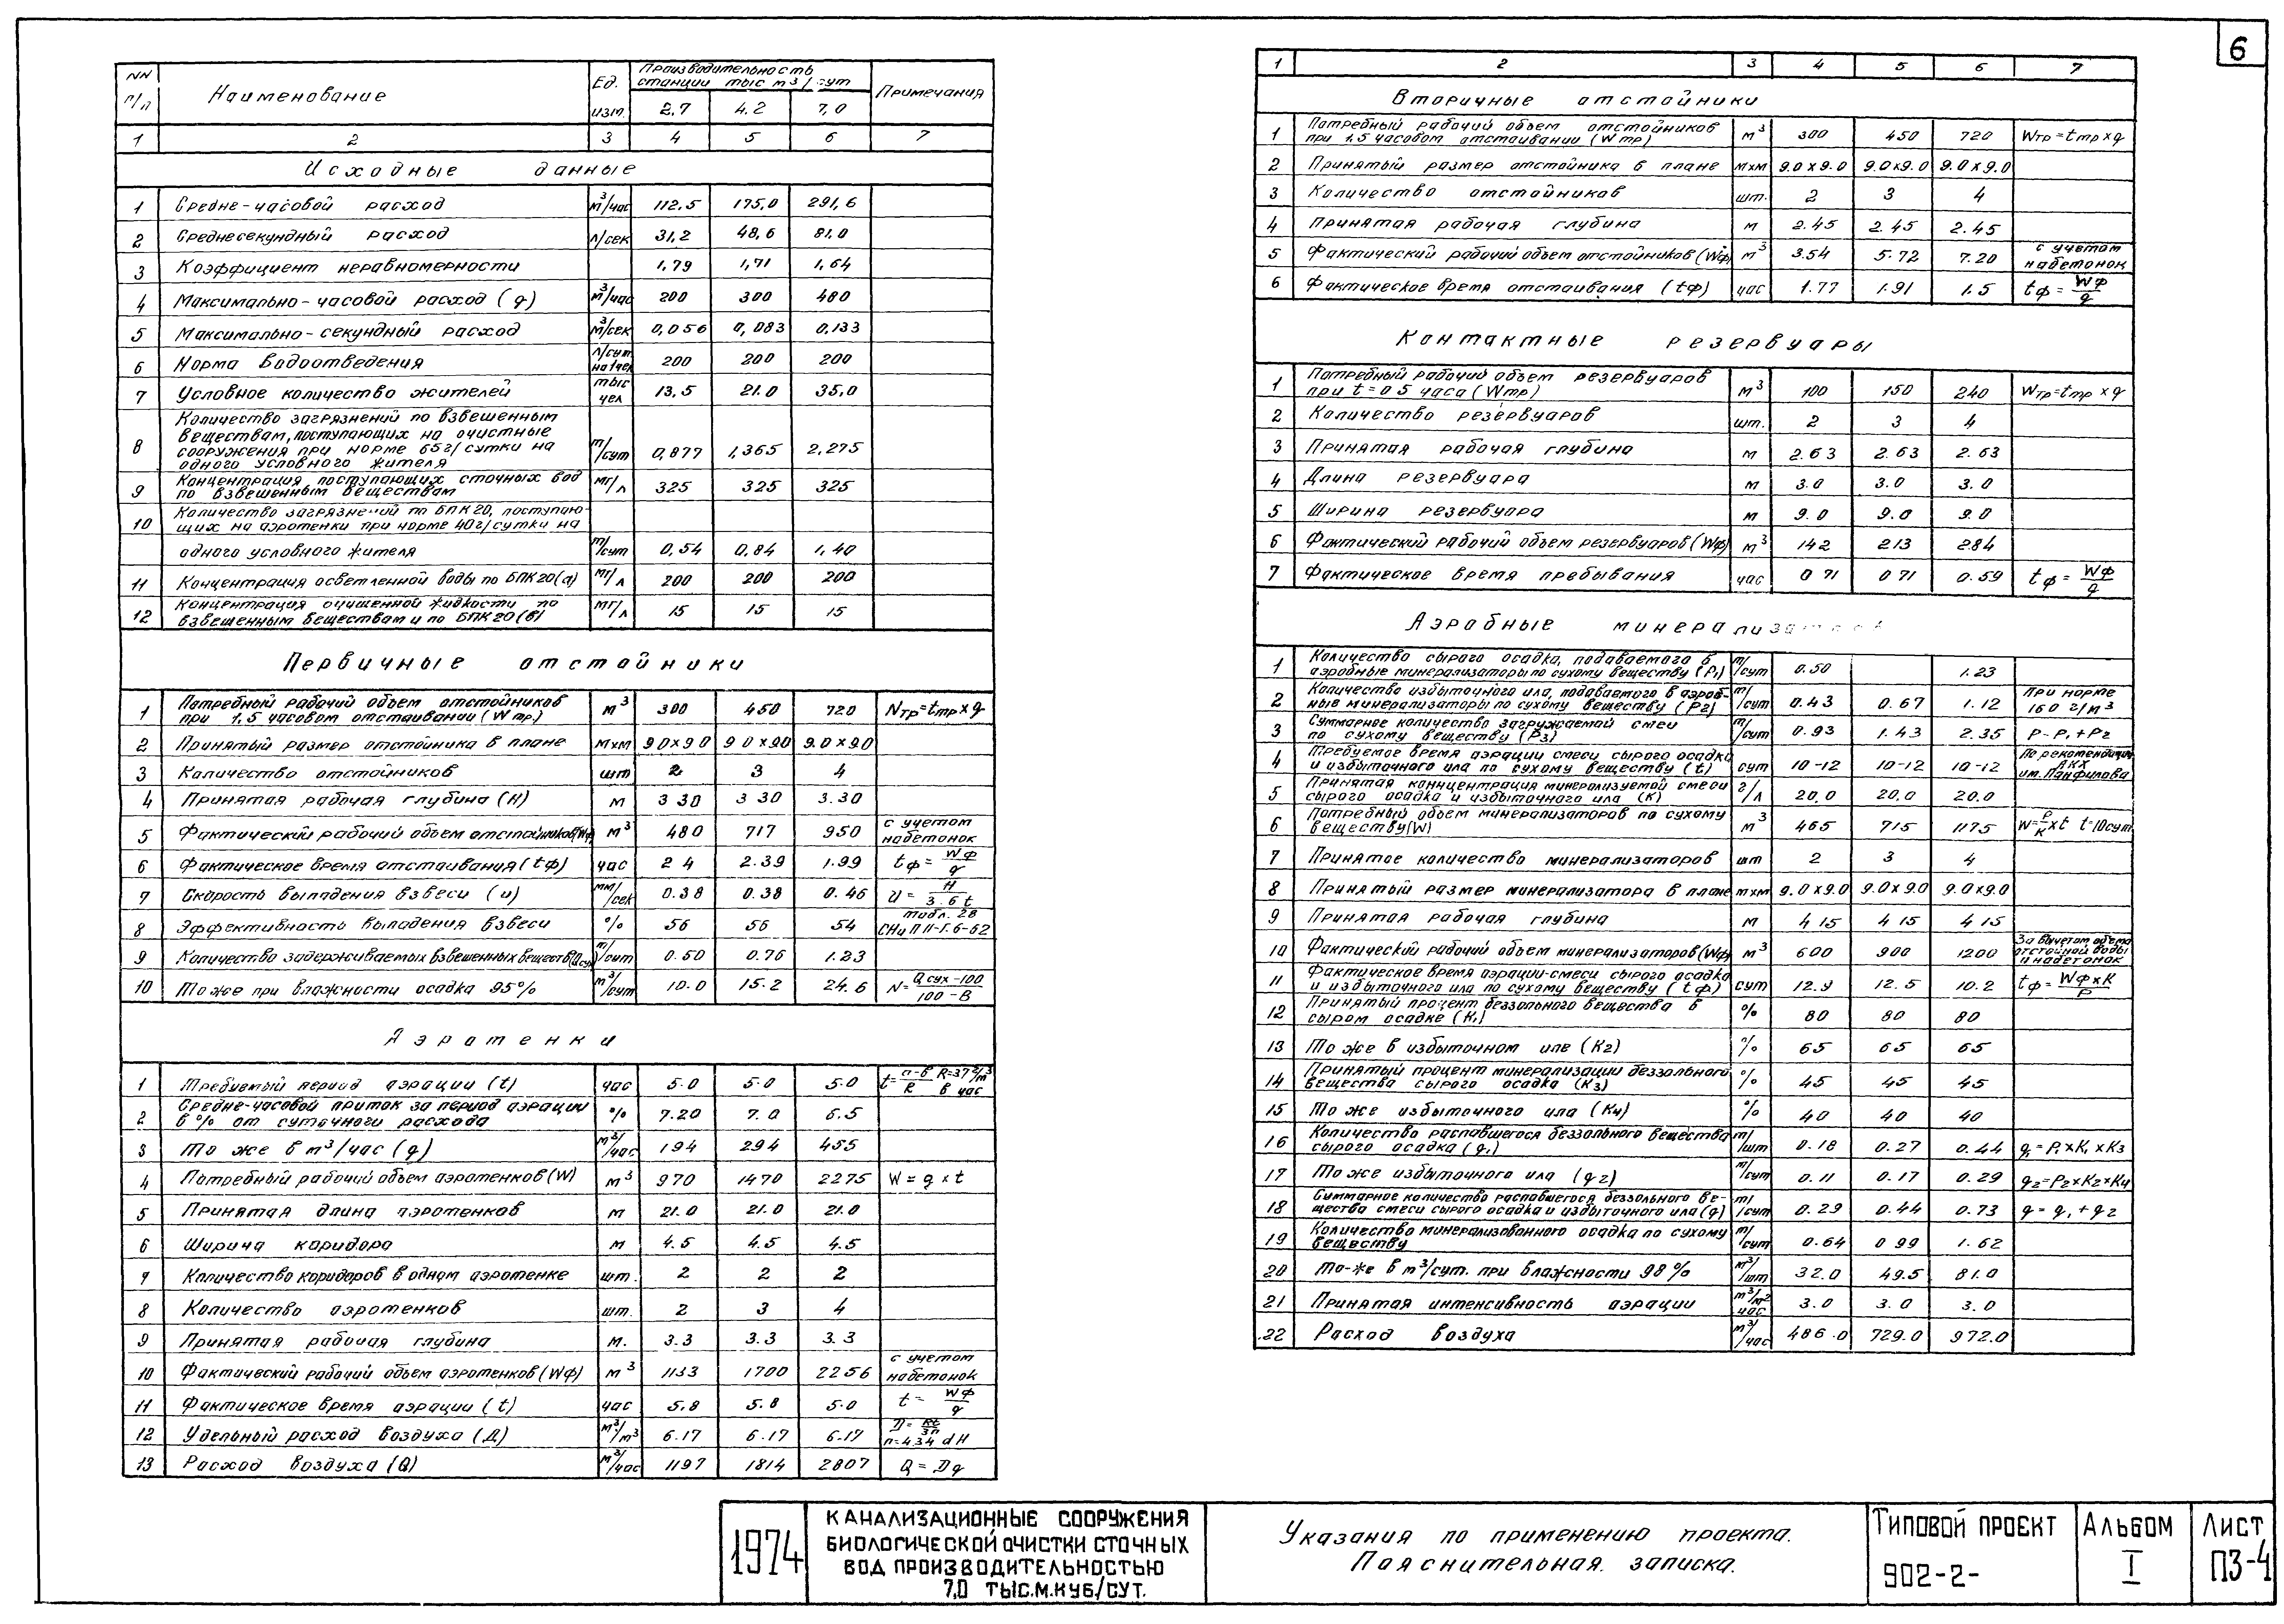 6
NN п/п | Наименование | Ед. изм. | Производительность станции тыс м3/сут | Примечания
2,7 | 4.2 | 7,0
1 | 2 | 3 | 4 | 5 | 6 | 7
Исходные данные
1 | Средне-часовой расход | м3/час | 112.5 | 175,0 | 291,6
2 | Среднесекундный расход | л/сек | 31,2 | 48,6 | 81.0
3 | Коэффициент неравномерности | 1,79 | 1,71 | 1,64
4 | Максимально-часовой расход (q) | м3/час | 200 | 300 | 480
5 | Максимально-секундный расход | м3/сек | 0,056 | 0,083 | 0,133
6 | Норма водоотведения | л/сут на 1чел | 200 | 200 | 200
7 | Условное количество жителей | тыс чел | 13,5 | 21.0 | 35,0
8 | Количество загрязнений по взвешенным
веществам, поступающих на очистные
сооружения при норме 65г/сутки на
одного условного жителя | т/сут | 0,877 | 1,365 | 2,275
9 | Концентрация поступающих сточных вод
по взвешенным веществам | мг/л | 325 | 325 | 325
10 | Количество загрязнений по БПК20, поступаю-
щих на аэротенки при норме 40г/сутки на
одного условного жителя | т/сут | 0,54 | 0,84 | 1,40
11 | Концентрация осветленной воды по БПК20(а) | мг/л | 200 | 200 | 200
12 | Концентрация очищенной жидкости по
взвешенным веществам и по БПК20(в) | мг/л | 15 | 15 | 15
Первичные отстойники
1 | Потребный рабочий объем отстойников
при 1,5 часовом отстаивании (Wтр.) | м3 | 300 | 450 | 720 | Nтр=tтр×q
2 | Принятый размер отстойника в плане | мхм | 90×90 | 90×90 | 9.0×9.0
3 | Количество отстойников | шт | 2 | 3 | 4
4 | Принятая рабочая глубина (Н) | м | 3 30 | 3 30 | 3.30
5 | Фактический рабочий объем отстойников(Wф) | м3 | 480 | 717 | 950 | с учетом надетонок
6 | Фактическое время отстаивания (tф) | час | 2 4 | 2.39 | 1.99 | tф = Wф/q
7 | Скорость выпадения взвеси (u) | мм/сек | 0.38 | 0.38 | 0.46 | U = H/3.6t
8 | Эффективность выпадения взвеси | % | 56 | 56 | 54 | табл. 28 СНиП II-Г.6-62
9 | Количество задерживаемых взвешенных веществ(Qсух) | т/сут | 0.50 | 0.76 | 1.23
10 | То же при влажности осадка 95% | м3/сут | 10.0 | 15.2 | 24.6 | N= Qсух-100/100-В
Аэротенки
1 | Требуемый период аэрации (t) | час | 5.0 | 5.0 | 5.0 | t= а-в/R R=37г/м3 в час
2 | Средне-часовой приток за период аэрации
в % от суточного расхода | % | 7.20 | 7.0 | 6.5
3 | То же в м3/час (q) | м3/час | 194 | 294 | 455
4 | Потребный рабочий объем аэротенков (W) | м3 | 970 | 1470 | 2275 | W = q × t
5 | Принятая длина аэротенков | м | 21.0 | 21.0 | 21.0
6 | Ширина коридора | м | 4.5 | 4.5 | 4.5
7 | Количество коридоров в одном аэротенке | шт. | 2 | 2 | 2
8 | Количество аэротенков | шт. | 2 | 3 | 4
9 | Принятая рабочая глубина | м. | 3.3 | 3.3 | 3.3
10 | Фактический рабочий объем аэротенков (Wф) | м3 | 1133 | 1700 | 2256 | с учетом надетонок
11 | Фактическое время аэрации (t) | час | 5,8 | 5.8 | 5.0 | t = Wф/q
12 | Удельный расход воздуха (Д) | м3/м3 | 6.17 | 6.17 | 6.17
13 | Расход воздуха (Q) | м3/час | 1197 | 1814 | 2807 | Q = Dq
1 | 2 | 3 | 4 | 5 | 6 | 7
Вторичные отстойники
1 | Потребный рабочий объем отстойников
при 1.5 часовом отстаивании (Wтр) | м3 | 300 | 450 | 720 | Wтр=tтр×q
2 | Принятый размер отстойника в плане | мхм | 9.0×9.0 | 9.0×9.0 | 9.0×9.0
3 | Количество отстойников | шт. | 2 | 3 | 4
4 | Принятая рабочая глубина | м | 2.45 | 2.45 | 2.45
5 | Фактический рабочий объем отстойников (Wф) | м3 | 3.54 | 5.72 | 7.20 | с учетом надетонок
6 | Фактическое время отстаивания (tф) | час | 1.77 | 1.91 | 1.5 | tф = Wф/q
Контактные резервуары
1 | Потребный рабочий объем резервуаров
при t=0 5 часа (Wтр) | м3 | 100 | 150 | 240 | Wтр=tтр×q
2 | Количество резервуаров | шт. | 2 | 3 | 4
3 | Принятая рабочая глубина | м | 2.63 | 2.63 | 2.63
4 | Длина резервуара | м | 3.0 | 3.0 | 3.0
5 | Ширина резервуара | м | 9.0 | 9.0 | 9.0
6 | Фактический рабочий объем резервуаров (Wф) | м3 | 142 | 213 | 284
7 | Фактическое время пребывания | час | 0 71 | 0 71 | 0.59 | tф = Wф/q
Аэробные
1 | Количество сырого осадка, подаваемого в
аэробные минерализаторы по сухому веществу (P1) | т/сут | 0.50 | 1.23
2 | Количество избыточного ила, подаваемого в аэроб-
ные минерализаторы по сухому веществу (P2) | т/сут | 0.43 | 0.67 | 1.12 | При норме 160 г/м3
3 | Суммарное количество загружаемой смеси
по сухому веществу (P3) | т/сут | 0.93 | 1.43 | 2.35 | P=P1+P2
4 | Требуемое время аэрации смеси сырого осадка
и избыточного ила по сухому веществу (t) | сут | 10-12 | 10-12 | 10-12 | По рекомендации АКХ им. Памфилова
5 | Принятая концентрация минерализуемой смеси
сырого осадка и избыточного ила (К) | г/л | 20,0 | 20,0 | 20.0
6 | Потребный объем минерализаторов по сухому
веществу (W) | м3 | 465 | 715 | 1175 | W=P/K×t t=10сут
7 | Принятое количество минерализаторов | шт | 2 | 3 | 4
8 | Принятый размер минерализатора в плане | мхм | 9.0×9.0 | 9.0×9.0 | 9.0×9.0
9 | Принятая рабочая глубина | м | 4 15 | 4 15 | 4 15
10 | Фактический рабочий объем минерализаторов (Wф) | м3 | 600 | 900 | 1200 | За вычетом объема отстойной воды и надетонок
11 | Фактическое время аэрации-смеси сырого осадка
и избыточного ила по сухому веществу (tф) | сут | 12.9 | 12.5 | 10.2 | tф = Wф×K/P
12 | Принятый процент беззольного вещества в
сыром осадке (К1) | % | 80 | 80 | 80
13 | То же в избыточном иле (К2) | % | 65 | 65 | 65
14 | Принятый процент минерализации беззольного
вещества сырого осадка (К3) | % | 45 | 45 | 45
15 | То же избыточного ила (К4) | % | 40 | 40 | 40
16 | Количество распавшегося беззольного вещества
сырого осадка (q1) | т/шт | 0.18 | 0.27 | 0.44 | q1=P1×K1×K3
17 | То же избыточного ила (q2) | т/сут | 0.11 | 0.17 | 0.29 | q2=P2×K2×K4
18 | Суммарное количество распавшегося беззольного ве-
щества смеси сырого осадка и избыточного ила (q) | т/сут | 0.29 | 0.44 | 0.73 | q=q1+q2
19 | Количество минерализованного осадка по сухому
веществу | т/сут | 0.64 | 0 99 | 1.62
20 | То-же в м3/сут. при влажности 98% | м3/шт | 32.0 | 49.5 | 81.0
21 | Принятая интенсивность аэрации | м3/м2 час | 3.0 | 3.0 | 3.0
22 | Расход воздуха | м3/час | 486.0 | 729.0 | 972.0
1974
КАНАЛИЗАЦИОННЫЕ СООРУЖЕНИЯ
БИОЛОГИЧЕСКОЙ ОЧИСТКИ СТОЧНЫХ
ВОД ПРОИЗВОДИТЕЛЬНОСТЬЮ
7,0 ТЫС.М.КУБ./СУТ.
Указания по применению проекта.
Пояснительная записка.
ТИПОВОЙ ПРОЕКТ
902-2-
АЛЬБОМ
I
ЛИСТ
ПЗ-4